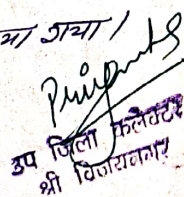 गया /
उप जिला कलेक्टर
श्री विजयनगर